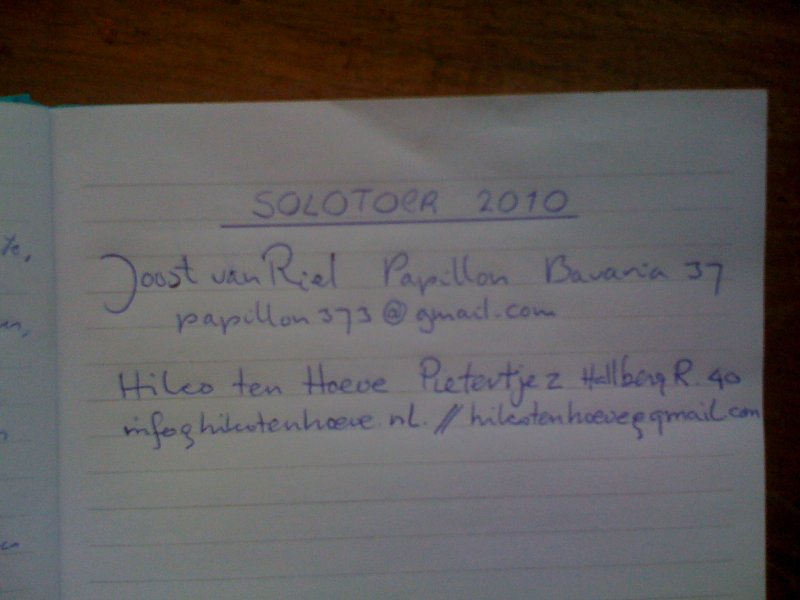 SOLOTOER 2010
Joost van Riel Papillon Bavaria 37
papillon373@gmail.com
Hilco ten Hoeve Pietertje 2 Hallberg R. 40
info@hilcotenhoeve.nl. // hilcotenhoeve@gmail.com